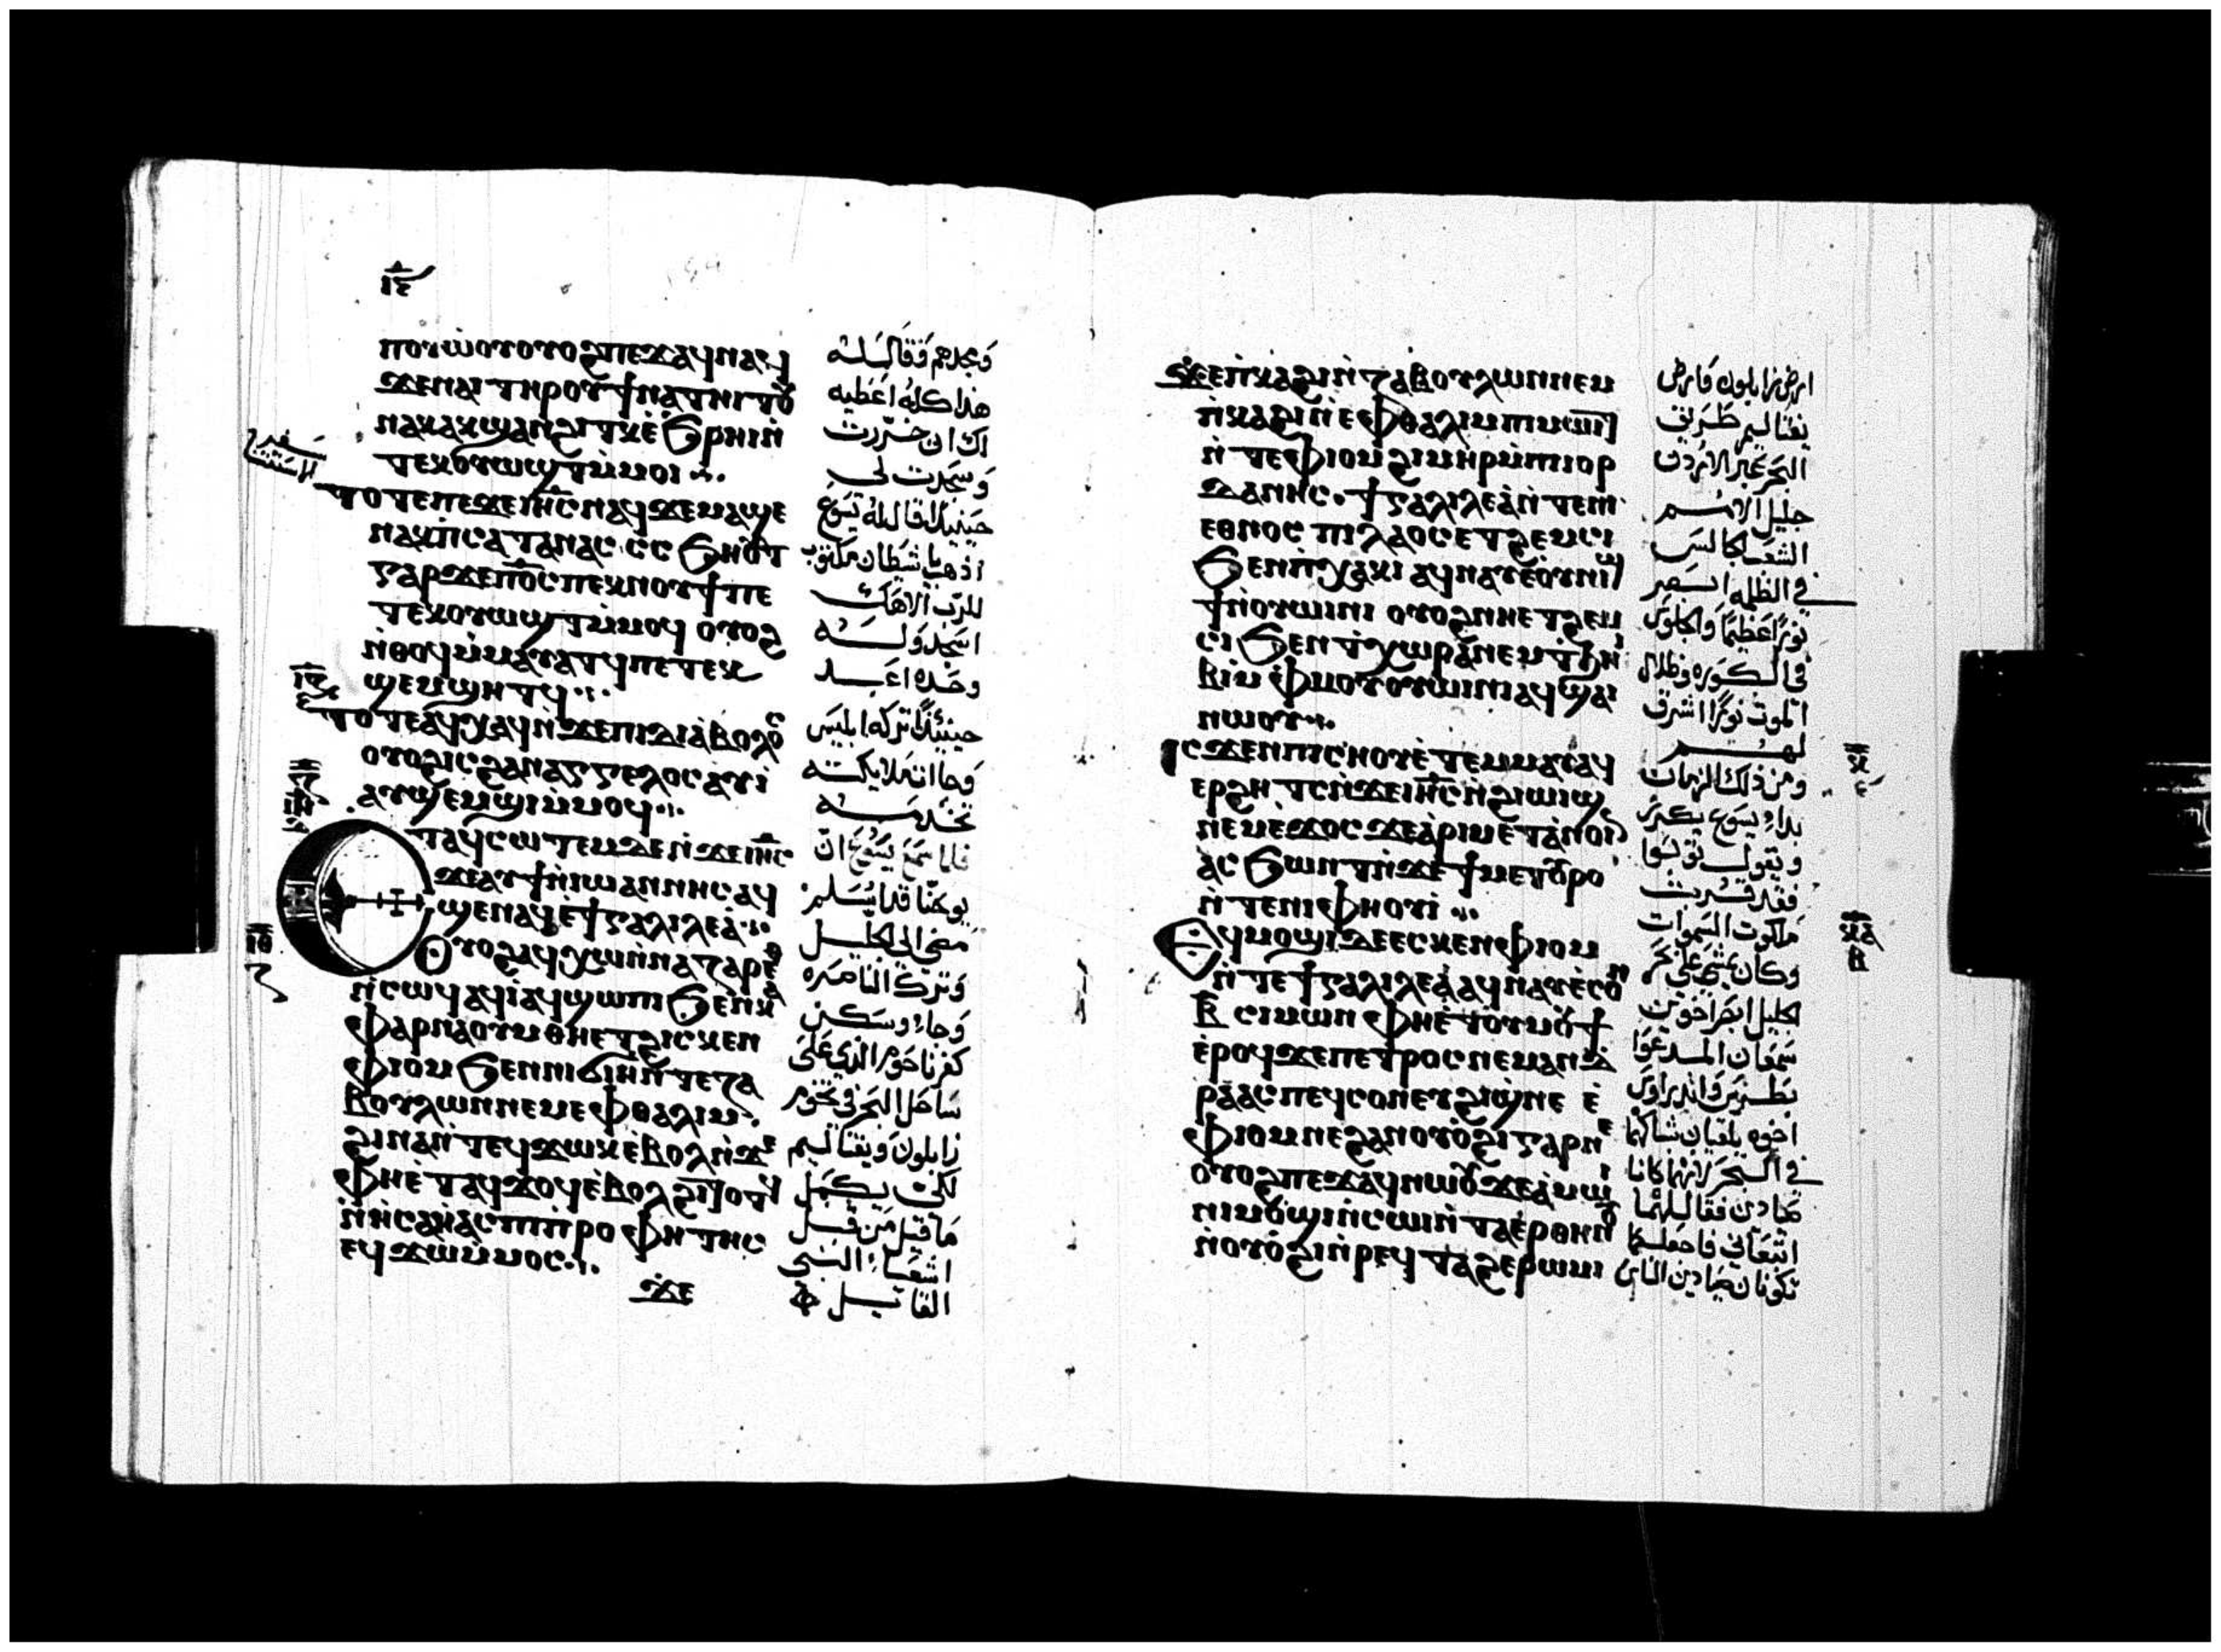 ⲡⲟⲩⲱⲟⲩ ⲟⲩⲟϩ ⲡⲉϫⲁϥ ⲛⲁϥ
ϫⲉ ⲛⲁⲓ ⲧⲏⲣⲟⲩ ϯⲛⲁⲧⲏⲓⲧⲟⲩ
ⲛⲁⲕ ⲁⲕϣⲁⲛϩⲓⲧⲕ ⲉ̀ϧⲣⲏⲓ ⲛ̀
ⲧⲉⲕⲟⲩⲱϣⲧ ⲙ̀ⲙⲟⲓ
ⲧⲟⲧⲉ ⲡⲉϫⲉ ⲓⲏ̅ⲥ̅ ⲛⲁϥ ϫⲉ ⲙⲁϣⲉ
ⲛⲁⲕ ⲡ̀ⲥⲁⲧⲁⲛⲁⲥ ⲥ̀ⲥϧⲏⲟⲩⲧ
ⲅⲁⲣ ϫⲉ ⲡⲟ̅ⲥ̅ ⲡⲉⲕⲛⲟⲩϯ ⲡⲉ
ⲧⲉⲕⲟⲩⲱϣⲧ ⲙ̀ⲙⲟϥ ⲟⲩⲟϩ
ⲛ̀ⲑⲟϥ ⲙ̀ⲙⲁⲩⲁⲧϥ ⲡⲉⲧⲉⲕ
ϣⲉⲙϣⲏⲧϥ
ⲧⲟⲧⲉ ⲁϥⲭⲁϥ ⲛ̀ϫⲉ ⲡⲓⲇⲓⲁⲃⲟⲗⲟⲥ
ⲟⲩⲟϩ ⲓⲥ ϩⲁⲛⲁⲅⲅⲉⲗⲟⲥ ⲁⲩⲓ̀
ⲁⲩϣⲉⲙϣⲓ ⲙ̀ⲙⲟϥ
ⲉⲧⲁϥⲥⲱⲧⲉⲙ ⲇⲉ ⲛ̀ϫⲉ ⲓⲏ̅ⲥ̅
ϫⲉ ⲁⲩϯ ⲛ̀ⲓⲱⲁⲛⲛⲏⲥ ⲁϥ
ϣⲉⲛⲁϥ ⲉ̀ϯⲅⲁⲗⲓⲗⲉⲁ̀
ⲟⲩⲟϩ ⲁϥⲭⲱ ⲛ̀ⲛⲁⲍⲁⲣⲉⲑ
ⲛ̀ⲥⲱϥ ⲁϥⲓ̀ ⲁϥϣⲱⲡⲓ ϧⲉⲛ ⲕⲁ
ⲫⲁⲣⲛⲁⲟⲩⲙ ⲑⲏⲉⲧϩⲓⲥⲕⲉⲛ
ⲫⲓⲟⲙ ϧⲉⲛ ⲛⲓϭⲓⲏ ⲛ̀ⲧⲉ ⲍⲁ
ⲃⲟⲩⲗⲱⲛ ⲛⲉⲙ ⲉⲫⲑⲁⲗⲓⲙ
ϩⲓⲛⲁ ⲛ̀ⲧⲉϥϫⲱⲕ ⲉ̀ⲃⲟⲗ ⲛ̀ϫⲉ
ⲫⲏⲉ̀ⲧⲁϥϫⲟϥ ⲉ̀ⲃⲟⲗ ϩⲓⲧⲟⲧϥ
ⲛ̀ⲏⲥⲁⲏ̀ⲁⲥ ⲡⲓⲡ̀ⲣⲟⲫⲏⲧⲏⲥ
ⲉϥϫⲱ ⲙ̀ⲙⲟⲥ
ϫⲉ
وبجدهم فقال له
هذا كله اعطيه
لك ان خررت
وسجدت لي
حينيذ قال له يسوع
اذهب يا شيطان مكتوب
للرب الاهك
اسجد وله
وحده اعبد
حينيذ تركه ابليس
وجاات ملايكته
تخدمه
فلما سمع يسوع ان
يوحنا قد اسلم
مضى الى الجليل
وترك الناصره
وجاء وسكن
كفرناحوم الذي على
ساحل البحر في تخوم
زابلون ونفتاليم
لكى يكمل
ما قيل من قبل
اشعياء النبي
القايل
ϫⲉ ⲡ̀ⲕⲁϩⲓ ⲛ̀ⲍⲁⲃⲟⲩⲗⲱⲛ ⲛⲉⲙ
ⲡ̀ⲕⲁϩⲓ ⲛ̀ⲉⲫⲑⲁⲗⲓⲙ ⲡⲓⲙⲱⲓⲧ
ⲛ̀ⲧⲉ ⲫⲓⲟⲙ ϩⲓⲙⲏⲣ ⲙ̀ⲡⲓⲓⲟⲣ
ⲇⲁⲛⲏⲥ ϯⲅⲁⲗⲓⲗⲉⲁ̀ ⲛ̀ⲧⲉ ⲛⲓ
ⲉⲑⲛⲟⲥ ⲡⲓⲗⲁⲟⲥ ⲉⲧϩⲉⲙⲥⲓ
ϧⲉⲛ ⲡ̀ⲭⲁⲕⲓ ⲁϥⲛⲁⲩ ⲉ̀ⲟⲩⲛⲓϣ
ϯ ⲛ̀ⲟⲩⲱⲓⲛⲓ ⲟⲩⲟϩ ⲛⲏⲉⲧϩⲉⲙ
ⲥⲓ ϧⲉⲛ ⲧ̀ⲭⲱⲣⲁ ⲛⲉⲙ ⲧ̀ϧⲏⲓ
ⲃⲓ ⲙ̀ⲫⲙⲟⲩ ⲟⲩⲱⲓⲛⲓ ⲁϥϣⲁⲓ
ⲛⲱⲟⲩ
ⲓⲥϫⲉⲛ ⲡⲓⲥⲏⲟⲩ ⲉ̀ⲧⲉⲙⲙⲁⲩ ⲁϥ
ⲉⲣϩⲏⲧⲥ ⲛ̀ϫⲉ ⲓⲏ̅ⲥ̅ ⲛ̀ϩⲓⲱⲓϣ
ⲛⲉⲙ ⲉ̀ϫⲟⲥ ϫⲉ ⲁ̀ⲣⲓⲙⲉⲧⲁⲛⲟⲓⲛ
ⲁⲥϧⲱⲛⲧ ⲛ̀ϫⲉ ϯⲙⲉⲧⲟⲩⲣⲟ
ⲛ̀ⲧⲉ ⲛⲓⲫⲏⲟⲩⲓ̀
ⲉϥⲙⲟϣⲓ ⲇⲉ ⲉⲥⲕⲉⲛ ⲫⲓⲟⲙ
ⲛ̀ⲧⲉ ϯⲅⲁⲗⲓⲗⲉⲁ̀ ⲁϥⲛⲁⲩ ⲉ̀ⲥⲟⲛ
ⲃ̅ ⲥⲓⲙⲱⲛ ⲫⲏⲉ̀ⲧⲟⲩⲙⲟⲩϯ
ⲉ̀ⲣⲟϥ ϫⲉ ⲡⲉⲧⲣⲟⲥ ⲛⲉⲙ ⲁⲛⲇ
ⲣⲉⲁⲥ ⲡⲉϥⲥⲟⲛ ⲉⲩϩⲓϣⲛⲉ ⲉ̀
ⲫⲓⲟⲙ ⲛⲉ ϩⲁⲛⲟⲩⲟϩⲓ ⲅⲁⲣ ⲛⲉ
ⲟⲩⲟϩ ⲡⲉϫⲁϥ ⲛⲱⲟⲩ ϫⲉ ⲁ̀ⲙⲱⲓ
ⲛⲓ ⲙⲟϣⲓ ⲛ̀ⲥⲱⲓ ⲛ̀ⲧⲁⲉⲣⲑⲏⲛⲟⲩ
ⲛ̀ⲟⲩⲟϩⲓ ⲛ̀ⲣⲉϥⲧⲁϩⲉⲣⲱⲙⲓ
ارض زابلون وارض
نفتاليم طريق
البحر عبر الاردن
جليل الامم
الشعب الجالس
في الظلمه ابصر
نورا عظيما والجلوس
في الكوره وظلال
الموت نورا اشرق
لهم
ومن ذلك الزمان
بدا يسوع يكرز
ويقول توبوا
فقد قربت
ملكوت السموات
وكان يمشي على بحر
الجليل ابصر اخوين
سمعان المدعوا
بطرس واندراوس
اخوه يلقيان شباكهما
في البحر لانهما كانا
صيادين فقال لهما
اتبعاني فاجعلكما
تكونان صيادين الناس